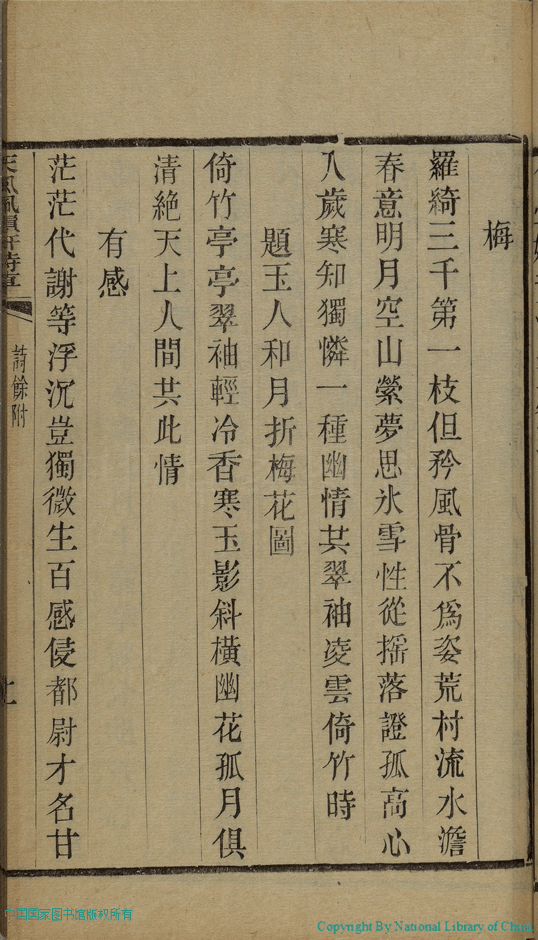 梅
羅綺三千第一枝但矜風骨不爲姿荒村流水澹
春意明月空山縈夢思氷雪性從揺落證孤高心
入歲寒知獨憐一種幽情共翠袖凌雲倚竹時
題玉人和月折梅花圖
倚竹亭亭翠袖輕冷香寒玉影斜橫幽花孤月俱
清絕天上人間共此情
有感
茫茫代謝等浮沉豈獨微生百感侵都尉才名甘
詩餘附
中国国家图书馆版权所有
Copyright By National Library of China